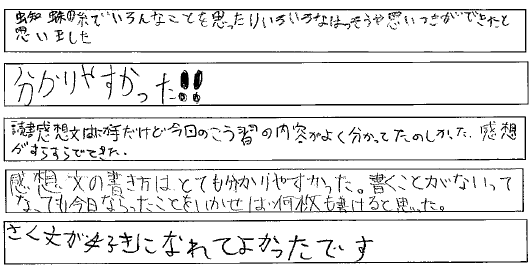 蜘蛛の糸でいろんなことを思ったりいろいろなはっそうや思いつきができたと
思いました
分かりやすかった!!
読書感想文は苦手だけど今回のこう習の内容がよく分かってたのしかった。感想
がすらすらでてきた。
感想文の書き方は、とても分かりやすかった。書くことがないって
なっても今日ならったことをいかせば何枚も書けると思った。
さく文が好きになれてよかったです